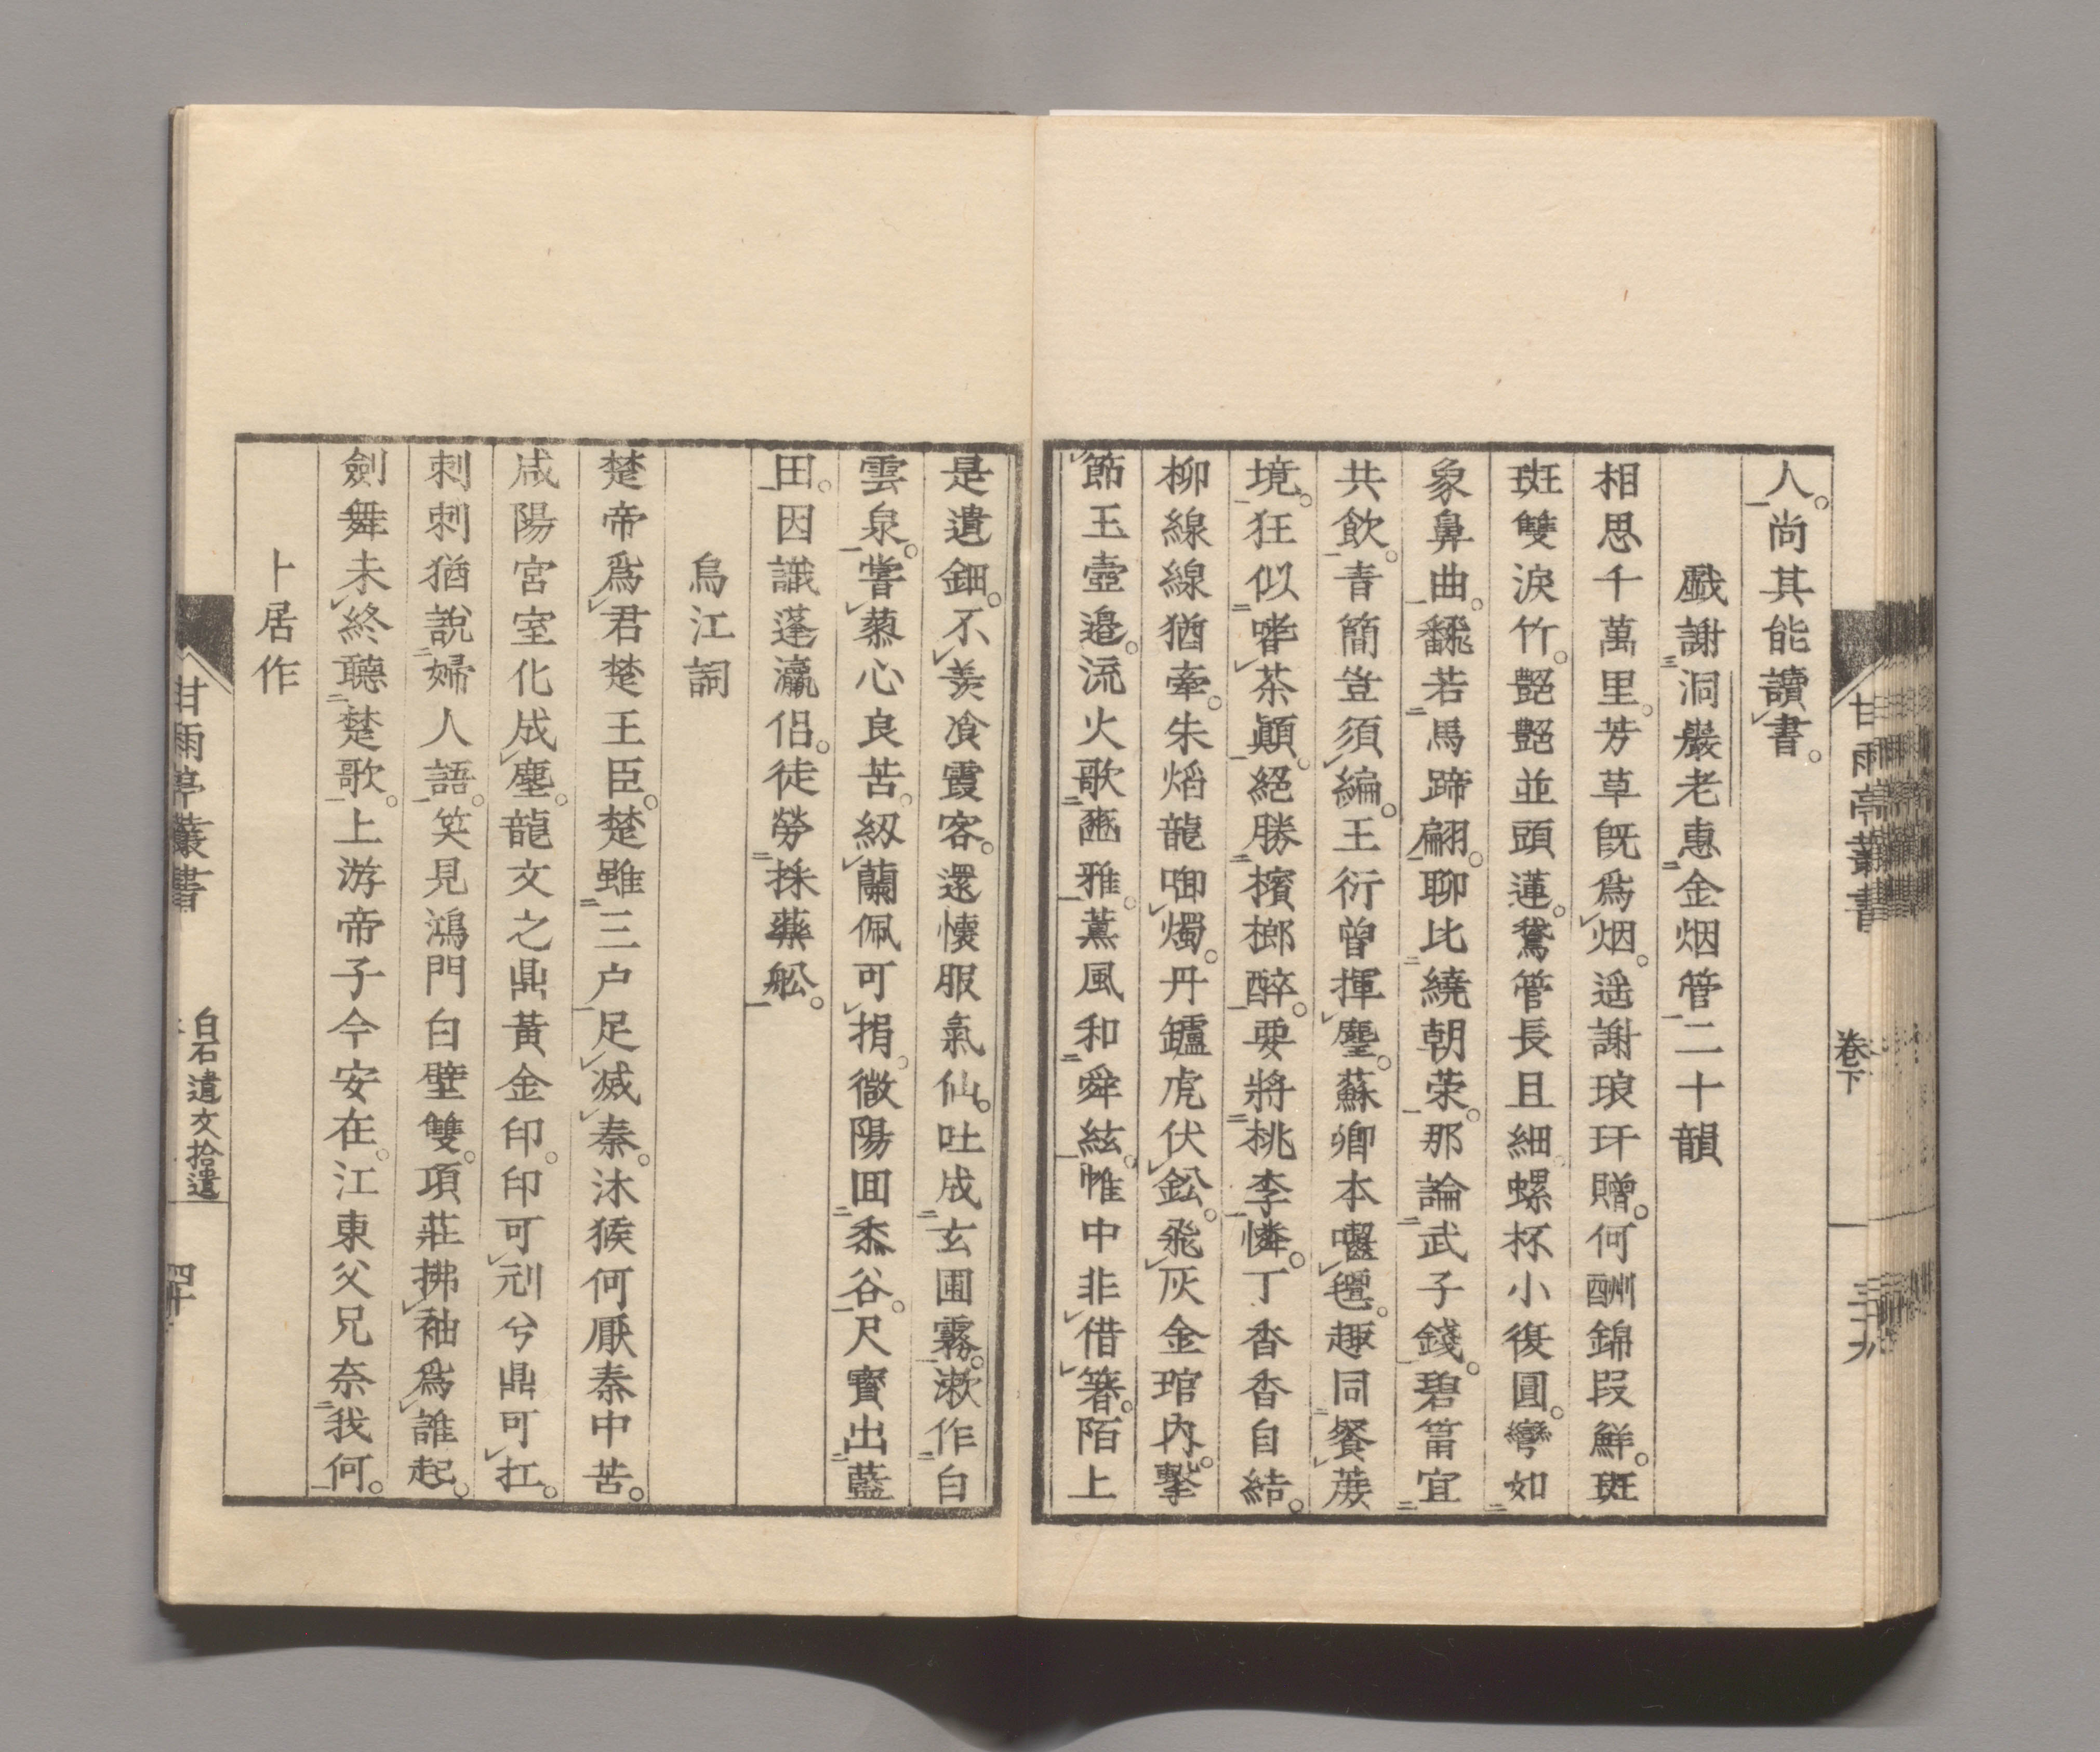 人。尚其能讀書。
戲謝洞巖老惠金烟管二十韻
相思千萬里。芳草旣爲烟。遥謝琅玕贈。何酬錦段鮮。斑
斑雙淚竹。艷艷並頭蓮。鵞管長且細。螺杯小復圓。彎如
象鼻曲。翻若馬蹄翩。聊比繞朝荣。那論武子錢。碧筩宜
共飲。青簡豈須編。王衍曾揮麈。蘇卿本囓氊。趣同餐蔗
境。狂似嗜茶顚。絕勝檳榔醉。要將桃李憐。丁香香自結。
柳線線猶牽。朱熖龍啣燭。丹鑪虎伏鈆。飛灰金琯內。擊
節玉壺邉。流火歌豳雅。薰風和舜絃。帷中非借箸。陌上
是遺鈿。不羨飡霞客。還懐服氣仙。吐成玄圃霧。漱作白
雲泉。嘗蓼心良苦。紉蘭佩可捐。微陽回黍谷。尺寳出藍
田。因識蓬瀛侶。徒勞採藥舩。
烏江詞
楚帝爲君楚王臣。楚雖三户足滅秦。沐猴何厭秦中苦。
咸陽宮室化成塵。龍文之鼎黃金印。印可刓兮鼎可扛。
刺刺猶說婦人語。笑見鴻門白壁雙。項莊拂袖爲誰起。
劍舞未終聽楚歌。上游帝子今安在。江東父兄奈我何。
卜居作
甘雨亭叢書 卷下 三十九
甘雨亭叢書 白石遺文拾遺 四十